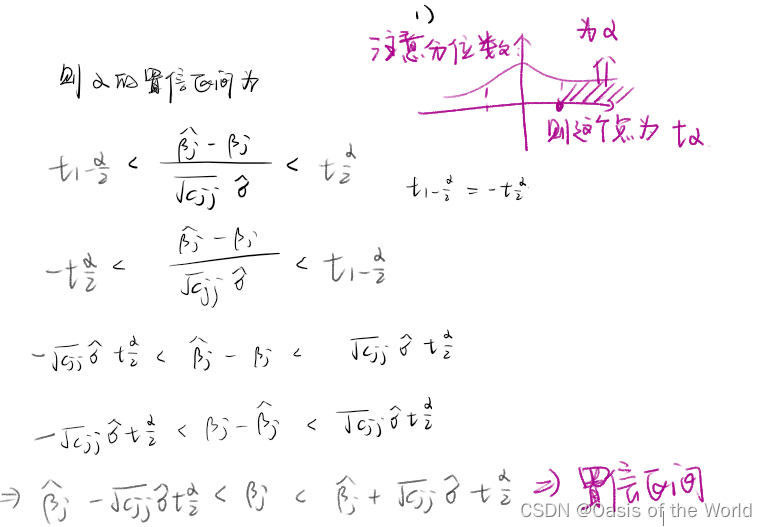 1)
注意分位数
为α
则这个点为 tα
则α的置信区间为
t1-α/2 < (β̂j - βj)/(√cjj σ̂) < tα/2
t1-α/2 = -tα/2
-tα/2 < (β̂j - βj)/(√cjj σ̂) < t1-α/2
-√cjj σ̂ tα/2 < β̂j - βj < √cjj σ̂ tα/2
-√cjj σ̂ tα/2 < βj - β̂j < √cjj σ̂ tα/2
⇒ β̂j - √cjj σ̂ tα/2 < βj < β̂j + √cjj σ̂ tα/2 ⇒ 置信区间
CSDN @Oasis of the World